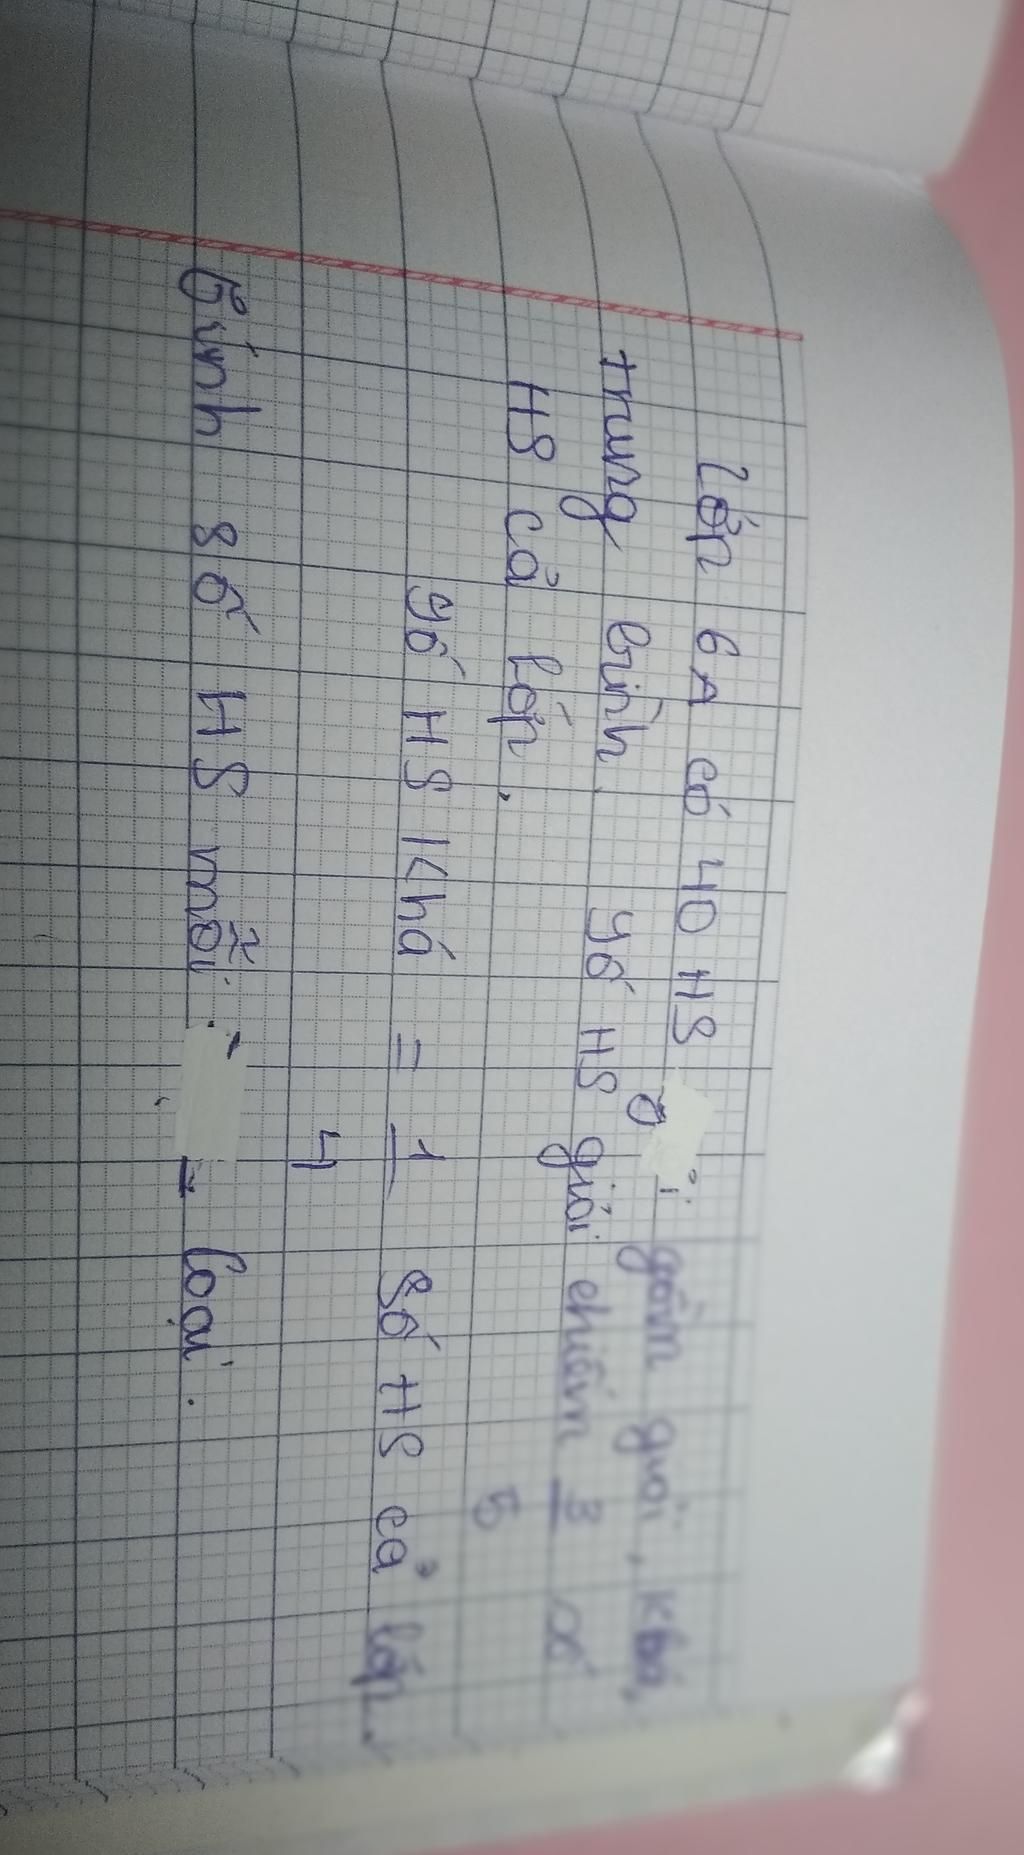 Lớp 6A có 40 HS gồm giỏi, khá,
trung bình. Số HS giỏi chiếm 3/5 số
HS cả lớp.
Số HS Khá = 1/4 số HS cả lớp.
Tính số HS mỗi loại.